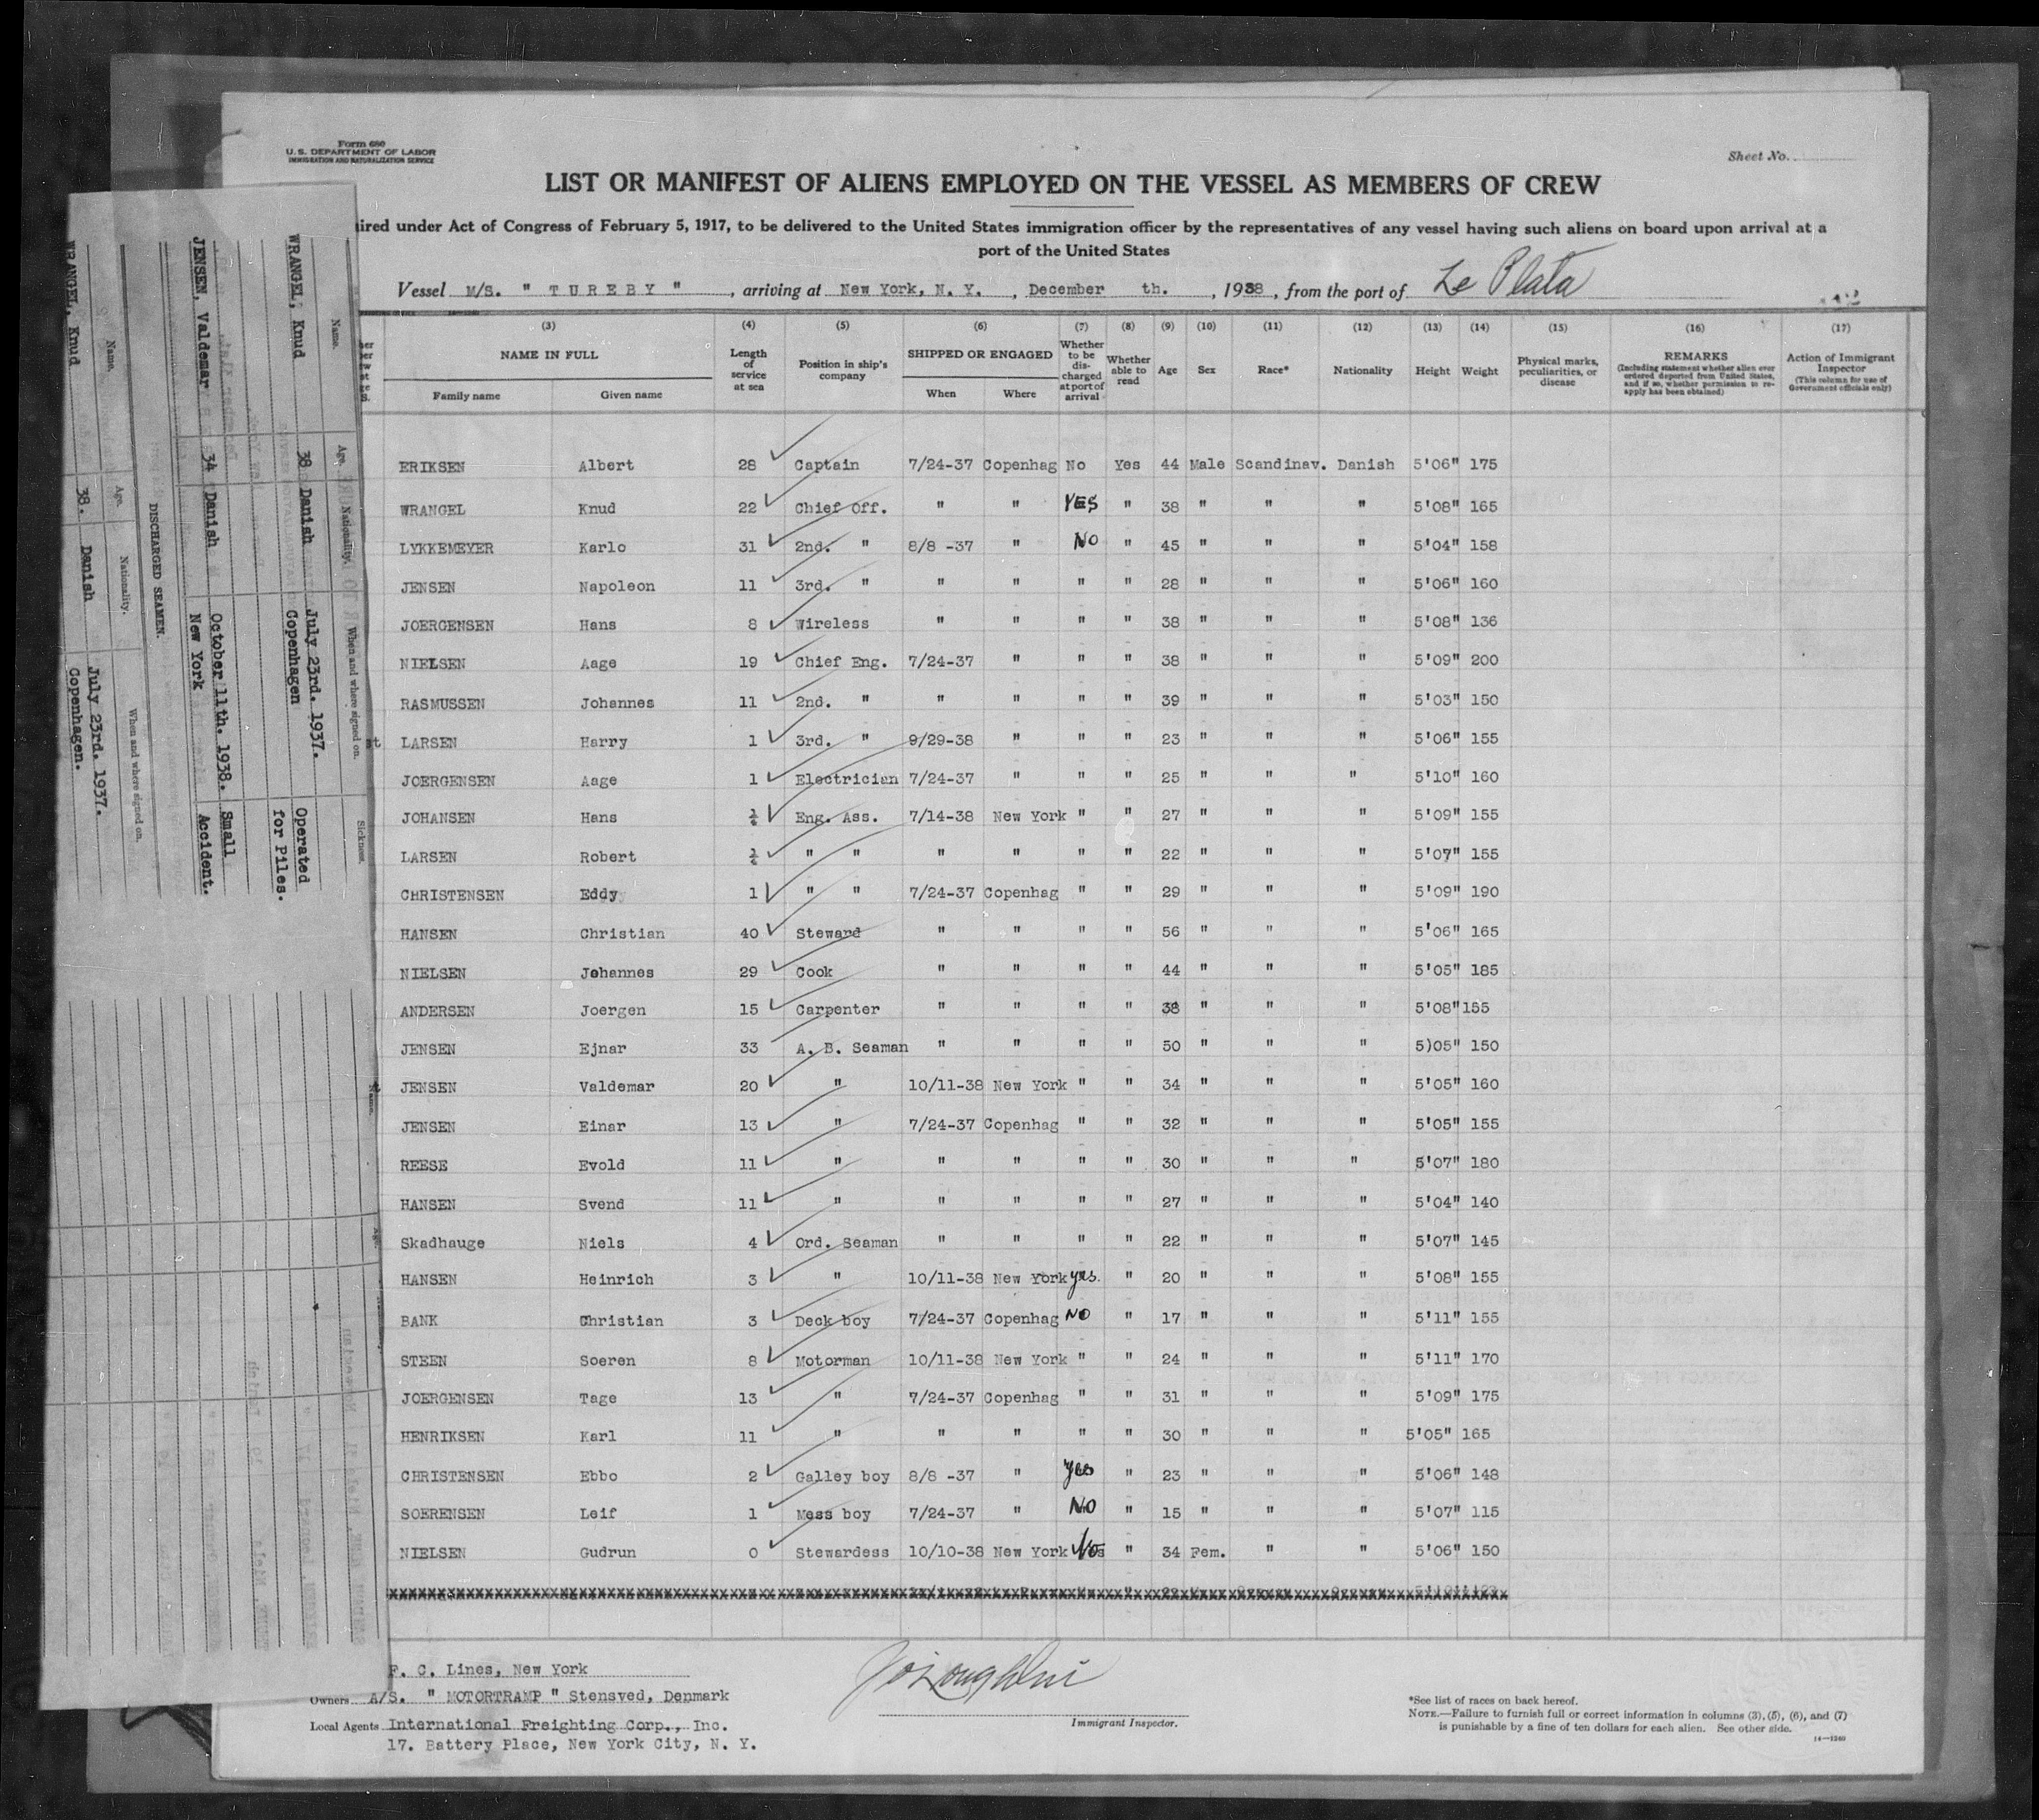 Form 680
U.S. DEPARTMENT OF LABOR
IMMIGRATION AND NATURALIZATION SERVICE
Sheet No.
LIST OR MANIFEST OF ALIENS EMPLOYED ON THE VESSEL AS MEMBERS OF CREW
ired under Act of Congress of February 5, 1917, to be delivered to the United States immigration officer by the representatives of any vessel having such aliens on board upon arrival at a
port of the United States
Vessel M/S. " TUREBY ", arriving at New York, N. Y., December th., 1938, from the port of La Plata
(3) (4) (5) (6) (7) (8) (9) (10) (11) (12) (13) (14) (15) (16) (17)
NAME IN FULL
Family name Given name
Length of service at sea
Position in ship's company
SHIPPED OR ENGAGED
When Where
Whether to be discharged at port of arrival
Whether able to read
Age
Sex
Race*
Nationality
Height
Weight
Physical marks, peculiarities, or disease
REMARKS
(Including statement whether alien ever ordered deported from United States, and if so, whether permission to reapply has been obtained)
Action of Immigrant Inspector
(This column for use of Government officials only)
ERIKSEN Albert 28 Captain 7/24-37 Copenhag No Yes 44 Male Scandinav. Danish 5'06" 175
WRANGEL Knud 22 Chief Off. " " YES " 38 " " " 5'08" 165
LYKKEMEYER Karlo 31 2nd. " 8/8 -37 " NO " 45 " " " 5'04" 158
JENSEN Napoleon 11 3rd. " " " " " 28 " " " 5'06" 160
JOERGENSEN Hans 8 Wireless " " " " 38 " " " 5'08" 136
NIELSEN Aage 19 Chief Eng. 7/24-37 " " " 38 " " " 5'09" 200
RASMUSSEN Johannes 11 2nd. " " " " " 39 " " " 5'03" 150
LARSEN Harry 1 3rd. " 9/29-38 " " " 23 " " " 5'06" 155
JOERGENSEN Aage 1 Electrician 7/24-37 " " " 25 " " " 5'10" 160
JOHANSEN Hans Eng. Ass. 7/14-38 New York " " 27 " " " 5'09" 155
LARSEN Robert " " " " " " 22 " " " 5'07" 155
CHRISTENSEN Eddy 1 " " 7/24-37 Copenhag " " 29 " " " 5'09" 190
HANSEN Christian 40 Steward " " " " 56 " " " 5'06" 165
NIELSEN Johannes 29 Cook " " " " 44 " " " 5'05" 185
ANDERSEN Joergen 15 Carpenter " " " " 38 " " " 5'08" 155
JENSEN Ejnar 33 A. B. Seaman " " " " 50 " " " 5)05" 150
JENSEN Valdemar 20 " 10/11-38 New York " " 34 " " " 5'05" 160
JENSEN Einar 13 " 7/24-37 Copenhag " " 32 " " " 5'05" 155
REESE Evold 11 " " " " " 30 " " " 5'07" 180
HANSEN Svend 11 " " " " " 27 " " " 5'04" 140
Skadhauge Niels 4 Ord. Seaman " " " " 22 " " " 5'07" 145
HANSEN Heinrich 3 " 10/11-38 New York yes. " 20 " " " 5'08" 155
BANK Christian 3 Deck boy 7/24-37 Copenhag NO " 17 " " " 5'11" 155
STEEN Soeren 8 Motorman 10/11-38 New York " " 24 " " " 5'11" 170
JOERGENSEN Tage 13 " 7/24-37 Copenhag " " 31 " " " 5'09" 175
HENRIKSEN Karl 11 " " " " " 30 " " " 5'05" 165
CHRISTENSEN Ebbo 2 Galley boy 8/8 -37 " Yes " 23 " " " 5'06" 148
SOERENSEN Leif 1 Mess boy 7/24-37 " NO " 15 " " " 5'07" 115
NIELSEN Gudrun 0 Stewardess 10/10-38 New York No " 34 Fem. " " 5'06" 150
F. C. Lines, New York
Owners A/S. " MOTORTRAMP " Stensved, Denmark
Local Agents International Freighting Corp., Inc.
17. Battery Place, New York City, N. Y.
Immigrant Inspector.
*See list of races on back hereof.
NOTE.—Failure to furnish full or correct information in columns (3), (5), (6), and (7)
is punishable by a fine of ten dollars for each alien. See other side.
14—1240
Name. Age. Nationality. When and where signed on. Sickness.
WRANGEL, Knud 38 Danish July 23rd. 1937. Copenhagen Operated for Piles.
JENSEN, Valdemar 34 Danish October 11th. 1938. New York Small Accident.
DISCHARGED SEAMEN.
Name. Age. Nationality. When and where signed on.
WRANGEL, Knud 38. Danish July 23rd. 1937. Copenhagen.